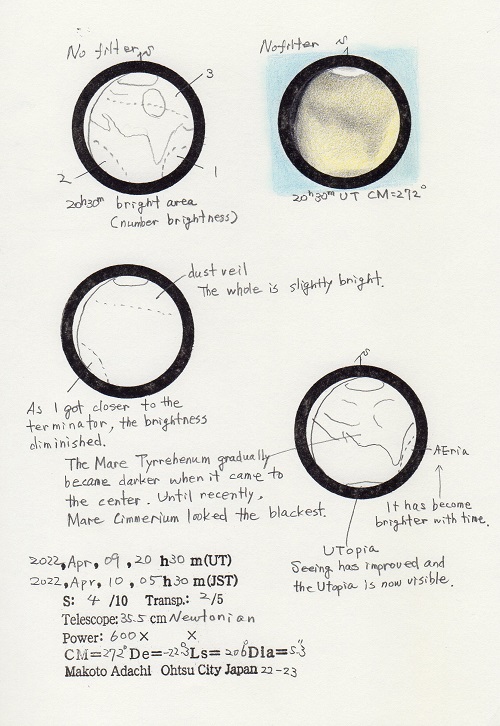 No filter S
3
2
1
20h30m bright area
(number brightness)
No filter S
20h30m UT CM=272°
dust veil
The whole is slightly bright.
As I got closer to the
terminator, the brightness
diminished.
S
The Mare Tyrrehenum gradually
became darker when it came to
the center. Until recently,
Mare Cimmerium looked the blackest.
AEria
It has become
brighter with time.
UTopia
Seeing has improved and
the Utopia is now visible.
2022, Apr, 09, 20 h30 m(UT)
2022, Apr, 10, 05 h30 m(JST)
S: 4 /10 Transp.: 2/5
Telescope: 35.5 cm Newtonian
Power: 600X X
CM=272° De=-22.3° Ls=206° Dia=5.3"
Makoto Adachi Ohtsu City Japan 22-23